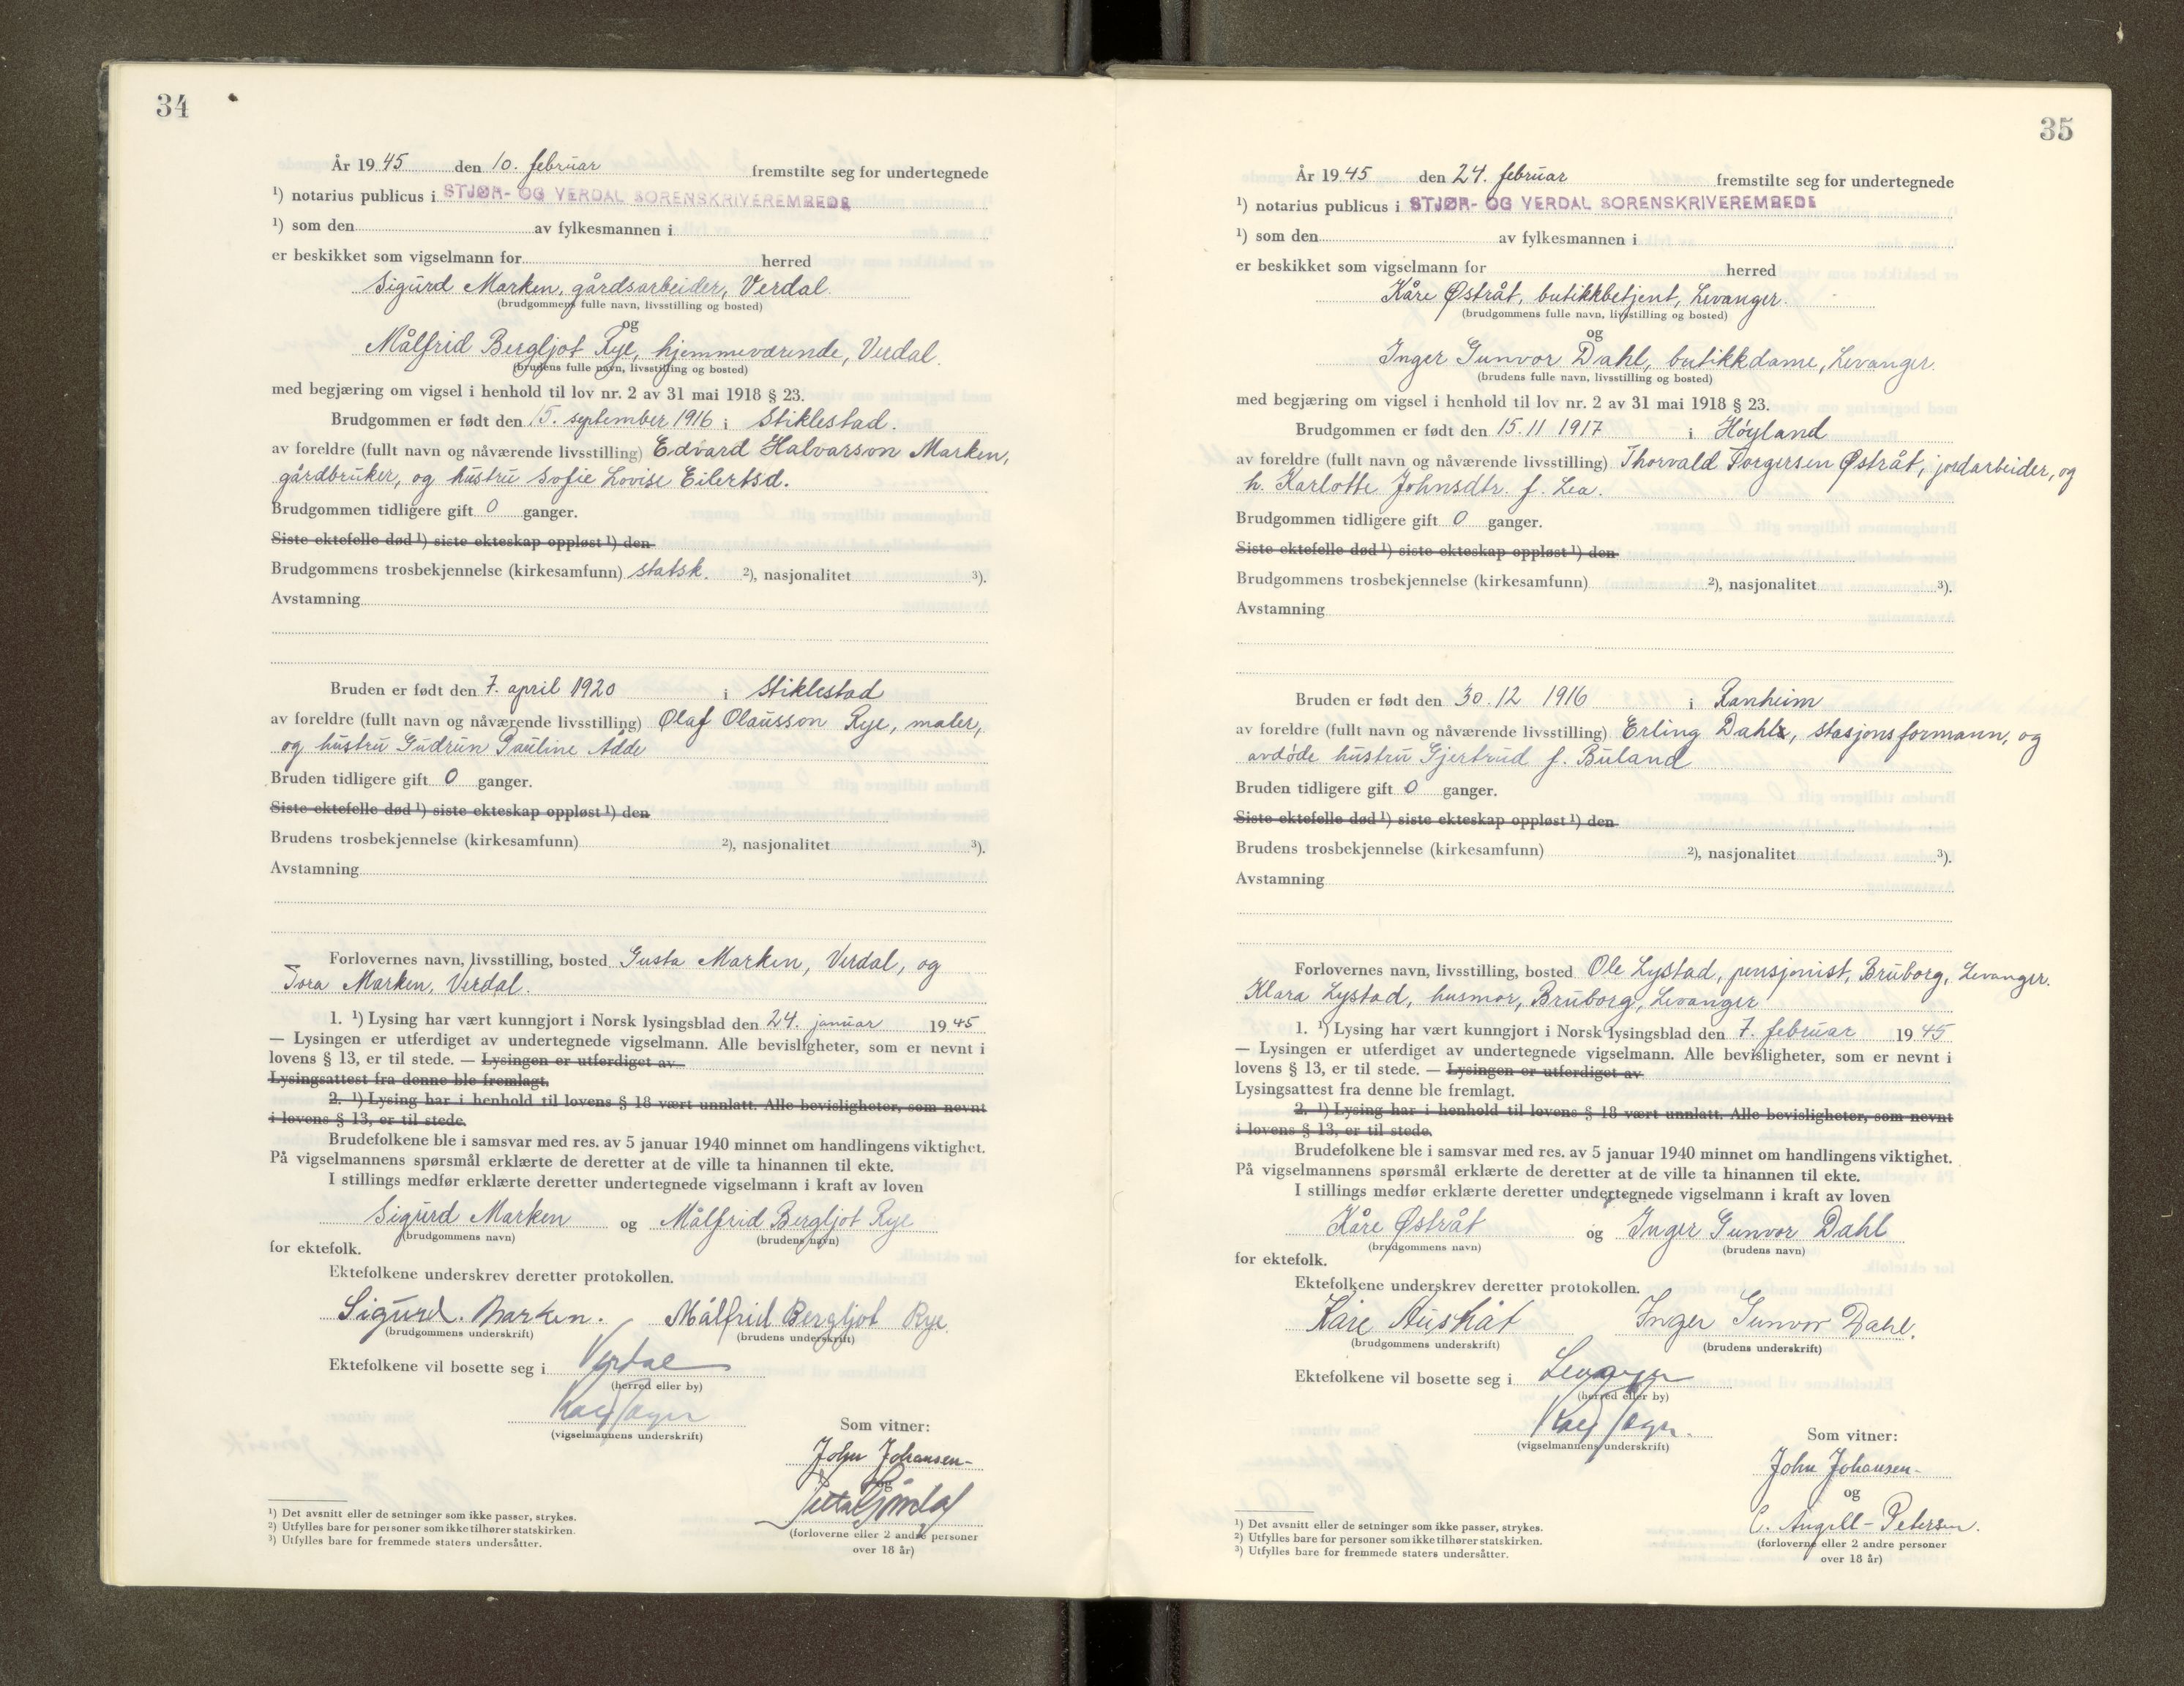 34
År 1945 den 10. februar fremstilte seg for undertegnede
¹) notarius publicus i STJØR- OG VERDAL SORENSKRIVEREMBEDE
¹) som den av fylkesmannen i
er beskikket som vigselmann for herred
Sigurd Marken, gårdsarbeider, Verdal.
(brudgommens fulle navn, livsstilling og bosted)
og
Målfrid Bergljot Rye, hjemmeværende, Verdal.
(brudens fulle navn, livsstilling og bosted)
med begjæring om vigsel i henhold til lov nr. 2 av 31 mai 1918 § 23.
Brudgommen er født den 15. september 1916 i Stiklestad.
av foreldre (fullt navn og nåværende livsstilling) Edvard Halvarson Marken,
gårdbruker, og hustru Sofie Lovise Eilertsd.
Brudgommen tidligere gift 0 ganger.
Siste ektefelle død ¹) siste ekteskap oppløst ¹) den
Brudgommens trosbekjennelse (kirkesamfunn) statsk. ²), nasjonalitet ³).
Avstamning
Bruden er født den 7. april 1920 i Stiklestad
av foreldre (fullt navn og nåværende livsstilling) Olaf Olausson Rye, maler,
og hustru Gudrun Pauline Ådde
Bruden tidligere gift 0 ganger.
Siste ektefelle død ¹) siste ekteskap oppløst ¹) den
Brudens trosbekjennelse (kirkesamfunn) ²), nasjonalitet ³).
Avstamning
Forlovernes navn, livsstilling, bosted Gusta Marken, Verdal, og
Tora Marken, Verdal.
1. ¹) Lysing har vært kunngjort i Norsk lysingsblad den 24. januar 1945
— Lysingen er utferdiget av undertegnede vigselmann. Alle bevisligheter, som er nevnt i
lovens § 13, er til stede. — Lysingen er utferdiget av
Lysingsattest fra denne ble fremlagt.
2. ¹) Lysing har i henhold til lovens § 18 vært unnlatt. Alle bevisligheter, som nevnt
i lovens § 13, er til stede.
Brudefolkene ble i samsvar med res. av 5 januar 1940 minnet om handlingens viktighet.
På vigselmannens spørsmål erklærte de deretter at de ville ta hinannen til ekte.
I stillings medfør erklærte deretter undertegnede vigselmann i kraft av loven
Sigurd Marken og Målfrid Bergljot Rye
(brudgommens navn) (brudens navn)
for ektefolk.
Ektefolkene underskrev deretter protokollen.
Sigurd. Marken. Målfrid Bergljot Rye
(brudgommens underskrift) (brudens underskrift)
Ektefolkene vil bosette seg i Verdal
(herred eller by)
(vigselmannens underskrift)
Som vitner:
John Johansen
og
(forloverne eller 2 andre personer
over 18 år)
¹) Det avsnitt eller de setninger som ikke passer, strykes.
²) Utfylles bare for personer som ikke tilhører statskirken.
³) Utfylles bare for fremmede staters undersåtter.
35
År 1945 den 24. februar fremstilte seg for undertegnede
¹) notarius publicus i STJØR- OG VERDAL SORENSKRIVEREMBEDE
¹) som den av fylkesmannen i
er beskikket som vigselmann for herred
Kåre Østråt, butikkbetjent, Levanger.
(brudgommens fulle navn, livsstilling og bosted)
og
Inger Gunvor Dahl, butikkdame, Levanger.
(brudens fulle navn, livsstilling og bosted)
med begjæring om vigsel i henhold til lov nr. 2 av 31 mai 1918 § 23.
Brudgommen er født den 15.11 1917 i Høyland
av foreldre (fullt navn og nåværende livsstilling) Thorvald Torgersen Østråt, jordarbeider, og
h. Karlotte Johnsdtr. f. Lea.
Brudgommen tidligere gift 0 ganger.
Siste ektefelle død ¹) siste ekteskap oppløst ¹) den
Brudgommens trosbekjennelse (kirkesamfunn) ²), nasjonalitet ³).
Avstamning
Bruden er født den 30.12 1916 i Ranheim
av foreldre (fullt navn og nåværende livsstilling) Erling Dahl, stasjonsformann, og
avdøde hustru Gjertrud f. Buland
Bruden tidligere gift 0 ganger.
Siste ektefelle død ¹) siste ekteskap oppløst ¹) den
Brudens trosbekjennelse (kirkesamfunn) ²), nasjonalitet ³).
Avstamning
Forlovernes navn, livsstilling, bosted Ole Lystad, pensjonist, Bruborg, Levanger.
Klara Lystad, husmor, Bruborg, Levanger
1. ¹) Lysing har vært kunngjort i Norsk lysingsblad den 7. februar 1945
— Lysingen er utferdiget av undertegnede vigselmann. Alle bevisligheter, som er nevnt i
lovens § 13, er til stede. — Lysingen er utferdiget av
Lysingsattest fra denne ble fremlagt.
2. ¹) Lysing har i henhold til lovens § 18 vært unnlatt. Alle bevisligheter, som nevnt
i lovens § 13, er til stede.
Brudefolkene ble i samsvar med res. av 5 januar 1940 minnet om handlingens viktighet.
På vigselmannens spørsmål erklærte de deretter at de ville ta hinannen til ekte.
I stillings medfør erklærte deretter undertegnede vigselmann i kraft av loven
Kåre Østråt og Inger Gunvor Dahl
(brudgommens navn) (brudens navn)
for ektefolk.
Ektefolkene underskrev deretter protokollen.
Kåre Inger Gunvor Dahl.
(brudgommens underskrift) (brudens underskrift)
Ektefolkene vil bosette seg i Levanger
(herred eller by)
(vigselmannens underskrift)
Som vitner:
John Johansen
og
C. Angell-Petersen.
(forloverne eller 2 andre personer
over 18 år)
¹) Det avsnitt eller de setninger som ikke passer, strykes.
²) Utfylles bare for personer som ikke tilhører statskirken.
³) Utfylles bare for fremmede staters undersåtter.